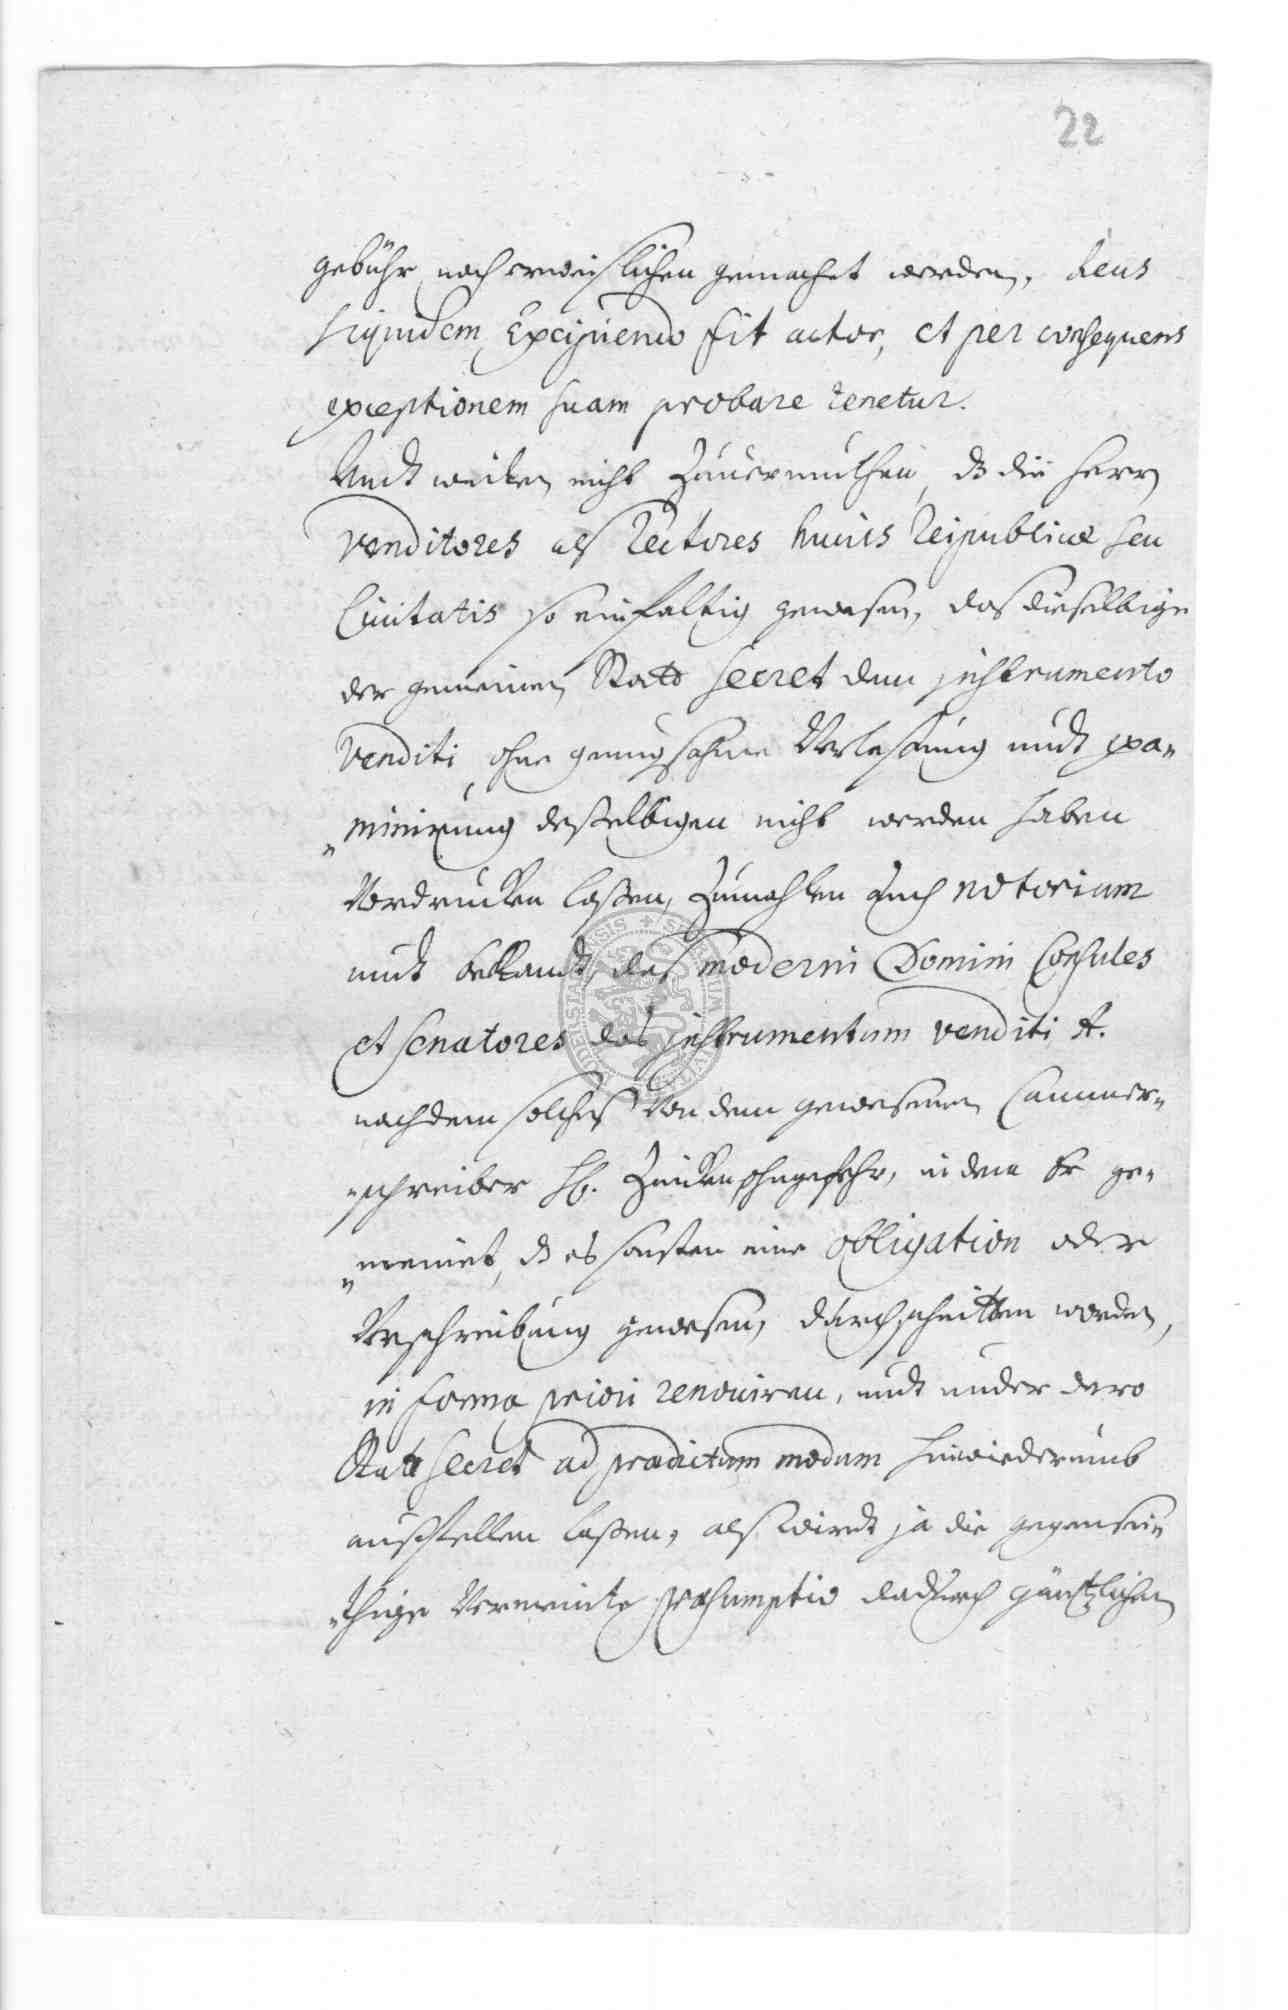 22
gebühr noch erweißlichen gemacht werden, Reus
siquidem Excipiendo fit actor, et per consequens
exceptionem suam probare tenetur.
Undt weilen nicht Zuvermuthen, dz die Herrn
Venditores alß Rectores huius Reipublicæ seu
Civitatis so einfaltig gewesen, das dieselbige
der gemeinen Statt Secret dem instrumento
Venditi, ohne genugsahme Verlesung undt exa„
„minirung deßelbigen nicht werden haben
Vordrucken laßen, Zumahlen auch notorium
undt bekandt, das moderni Domini Consules
et Senatores das instrumentum venditi et.
nachdem solches Von dem gewesenen Cammer„
„schreiber ohngefehr, in dem Er ge„
„meinet, dz es sonsten eine obligation oder
Verschreibung gewesen, durchschnitten worden,
in forma priori renoviren, undt under dero
Statt Secret ad prædictum modum hinwiederumb
außstellen laßen, alß wirdt ja die gegensei„
„thige Vermeinte præsumptio dadurch gäntzlichen